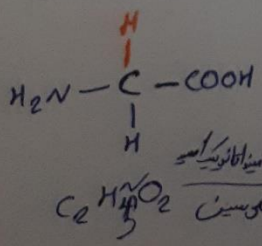 H
H₂N — C — COOH
H
آمینواتانوئیک اسید
C₂ H₅ N O₂